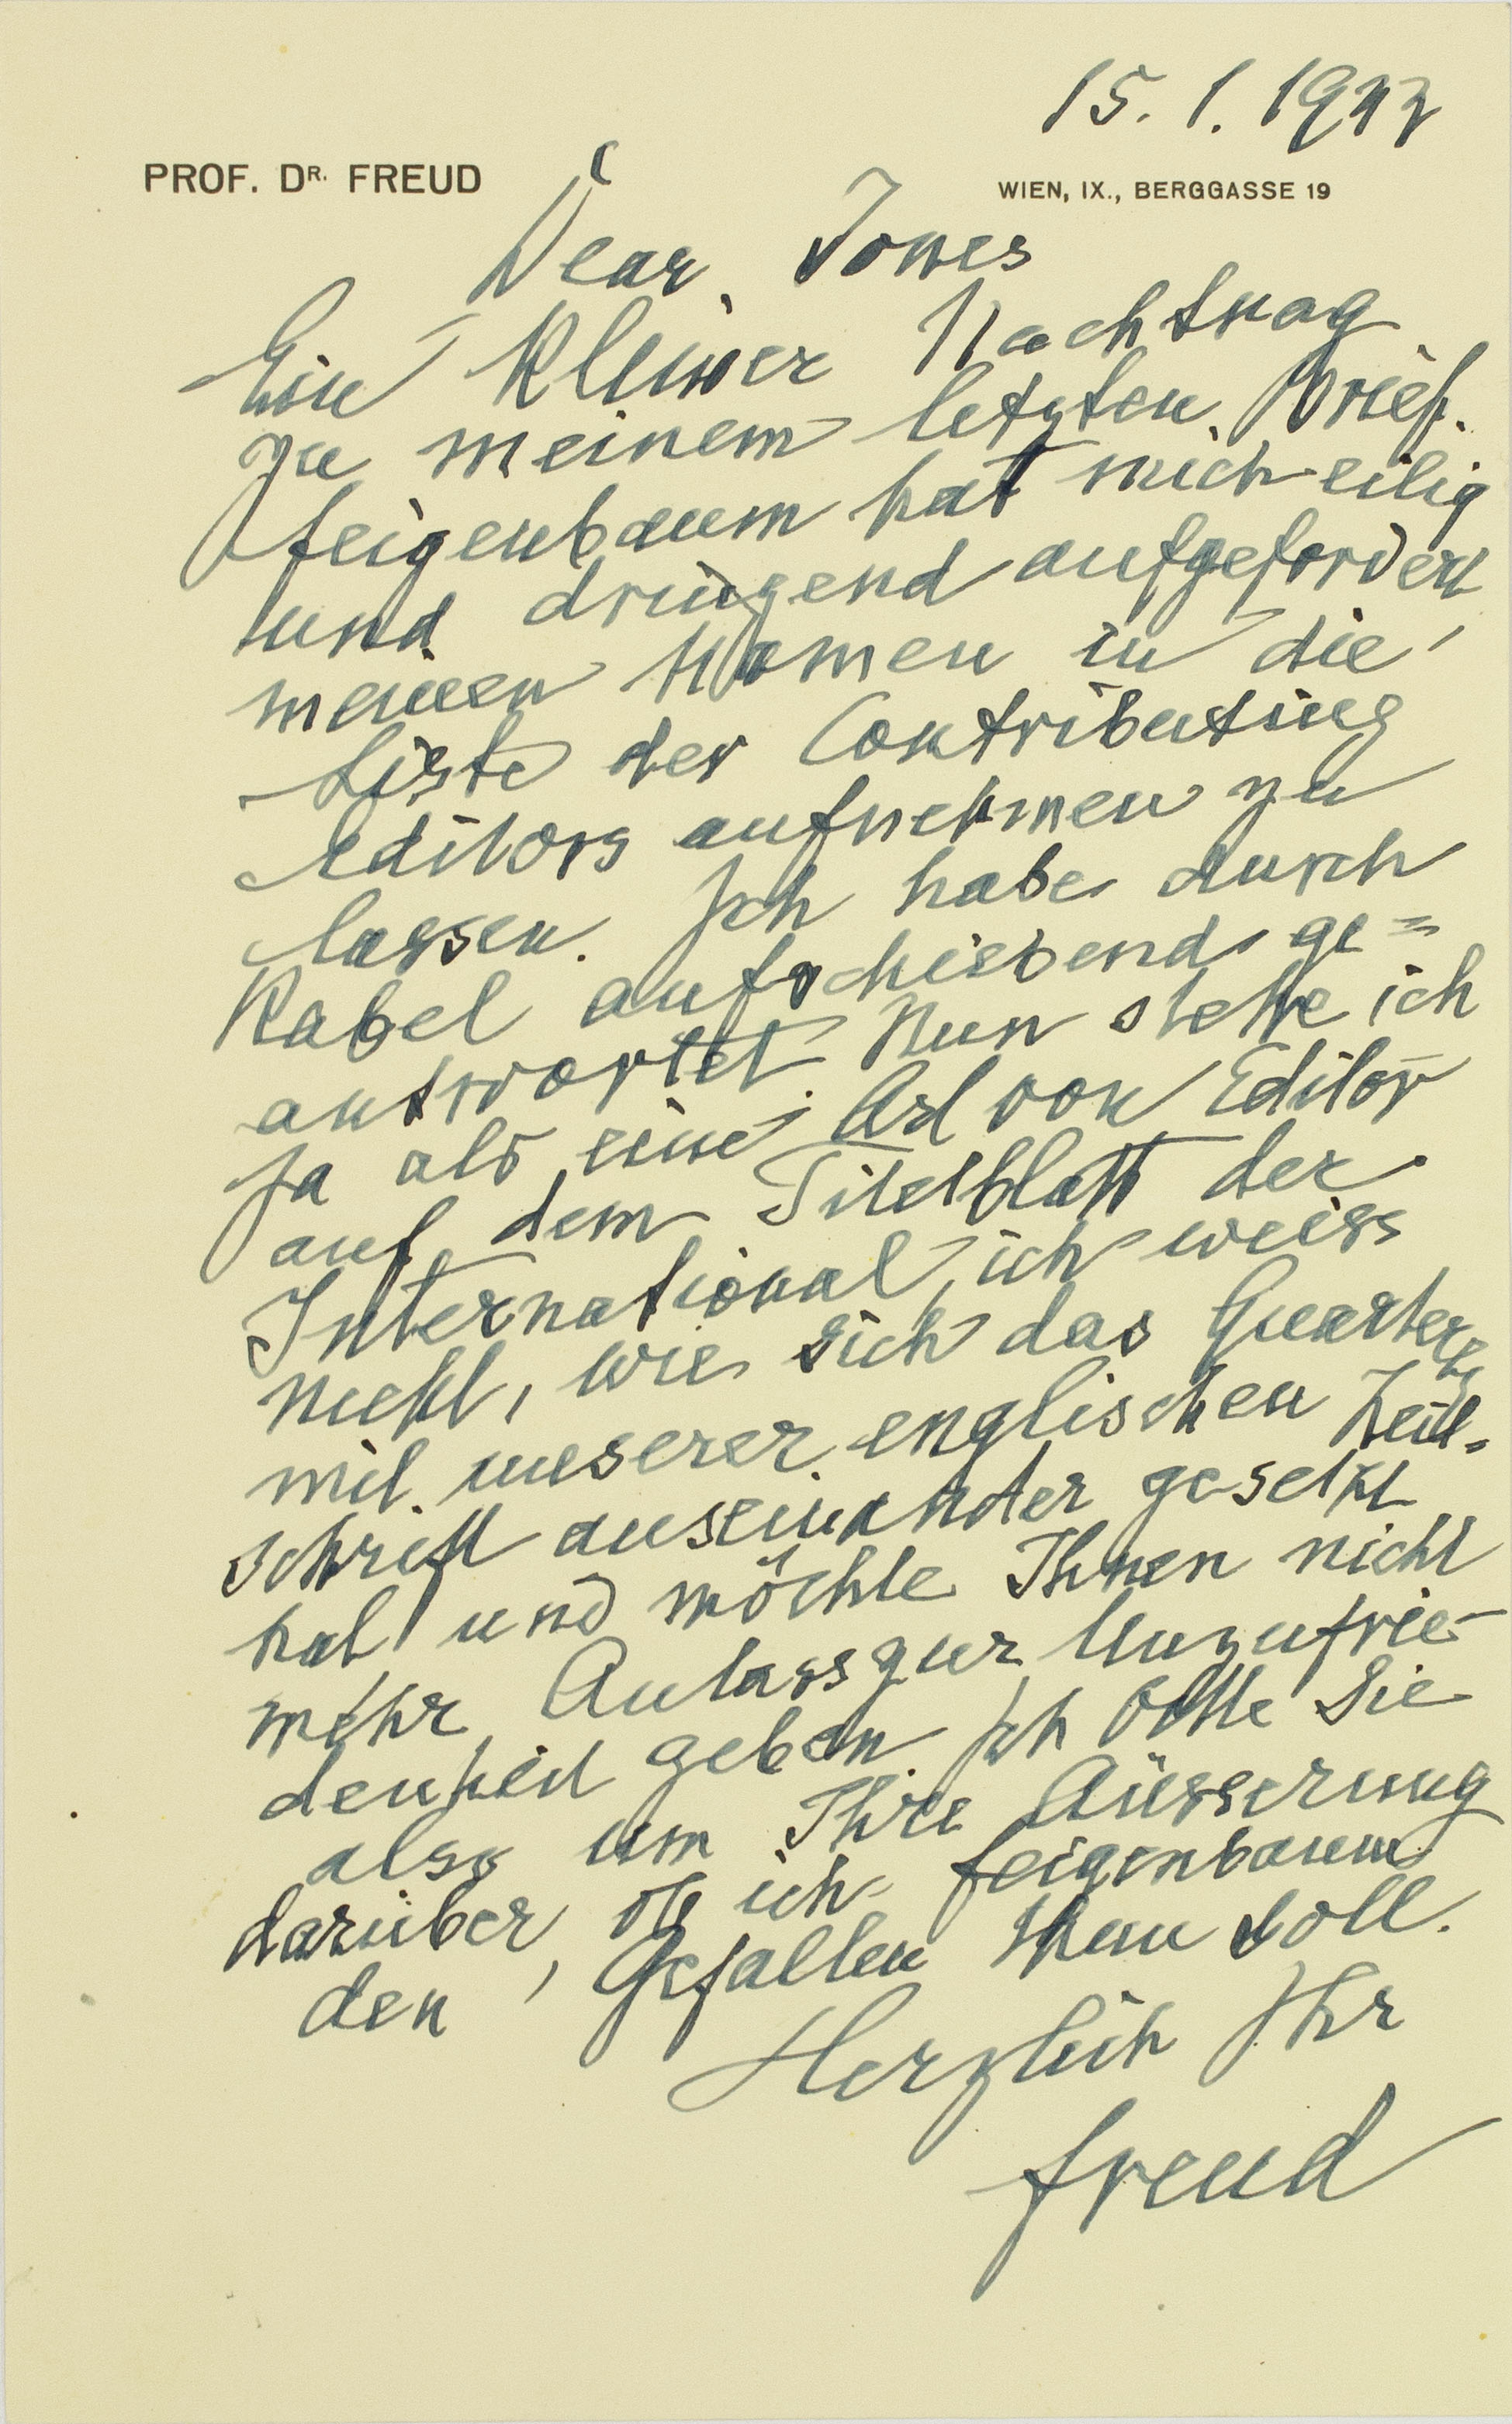 15. 1. 1933
PROF. DR. FREUD
WIEN, IX., BERGGASSE 19
Dear Jones
Ein kleiner Nachtrag
zu meinem letzten Brief.
Feigenbaum hat mich eilig
und dringend aufgefordert
meinen Namen in die
Liste der Contributing
Editors aufnehmen zu
lassen. Ich habe durch
Kabel aufschiebend ge=
antwortet. Nun stehe ich
ja als eine Art von Editor
auf dem Titelblatt der
International, ich weiss
nicht, wie sich das Quarterly
mit unserer englischen Zeit=
schrift auseinander gesetzt
hat und möchte Ihnen nicht
mehr Anlass zur Unzufrie-
denheit geben. Ich bitte Sie
also um Ihre Äusserung
darüber, ob ich Feigenbaum
den Gefallen thun soll.
Herzlich Ihr
Freud